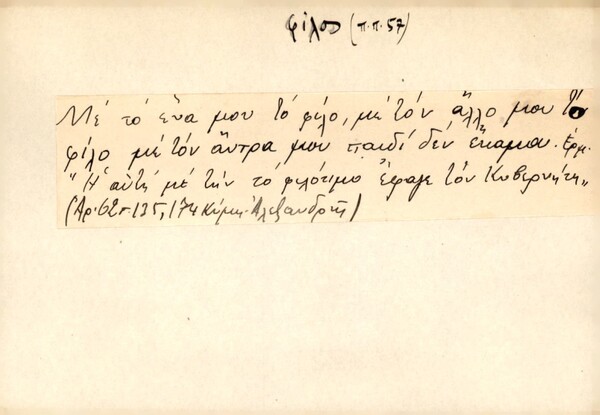 φίλος (π.π. 57)
Μέ τό ἕνα μου τό φίλο, μέ τόν ἄλλο μου τό
φίλο μέ τόν ἄντρα μου παιδί δέν ἔκαμα. Ἑρμ.
"Ἡ αὐτή μέ τήν τό φιλότιμο ἔφαγε τόν Κυβερνήτη"
(Ἀρ. 62 σ. 135, 174 Κύμη. Ἀλεξανδρῆς)